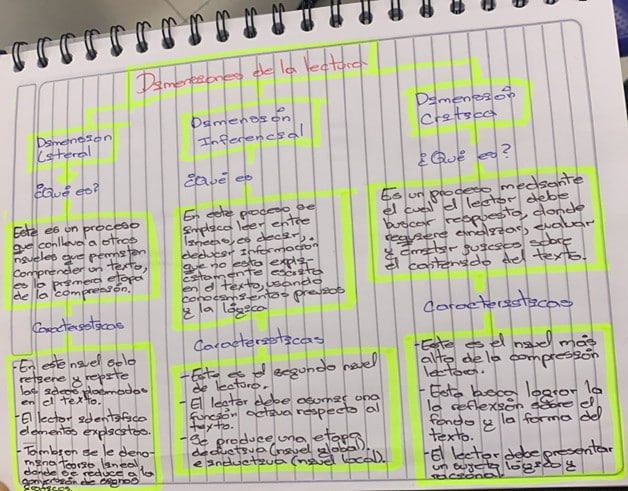 Dimensiones de la lectura
Dimensión
Literal
¿Qué es?
Este es un proceso
que conlleva a otros
niveles que permiten
comprender un texto,
es la primera etapa
de la comprensión.
Características
-En este nivel solo
retiene y repite
las ideas plasmadas
en el texto.
-El lector identifica
elementos explicitos.
-Tambien se le deno-
mina fase lineal
donde se reduce a la
Dimensión
Inferencial
¿Qué es
En este proceso se
implica leer entre
lineas, es decir,
deducir información
que no esta expli-
citamente escrita
en el texto, usando
conocimientos previos
y la lógica.
Características
-Este es el segundo nivel
de lectura.
-El lector debe asumir una
función activa respecto al
texto.
-Se produce una etapa
deductiva (nivel global)
e inductiva (nivel local).
Dimensión
Critica
¿Qué es?
Es un proceso mediante
el cual el lector debe
buscar respuesta, donde
requiere analizar, evaluar
y emitir juicios sobre
el contenido del texto.
Características
-Este es el nivel más
alto de la comprensión
lectora.
-Esta busca lograr la
la reflexión sobre el
fondo y la forma del
texto.
-El lector debe presentar
un sujeto lógico y
racional